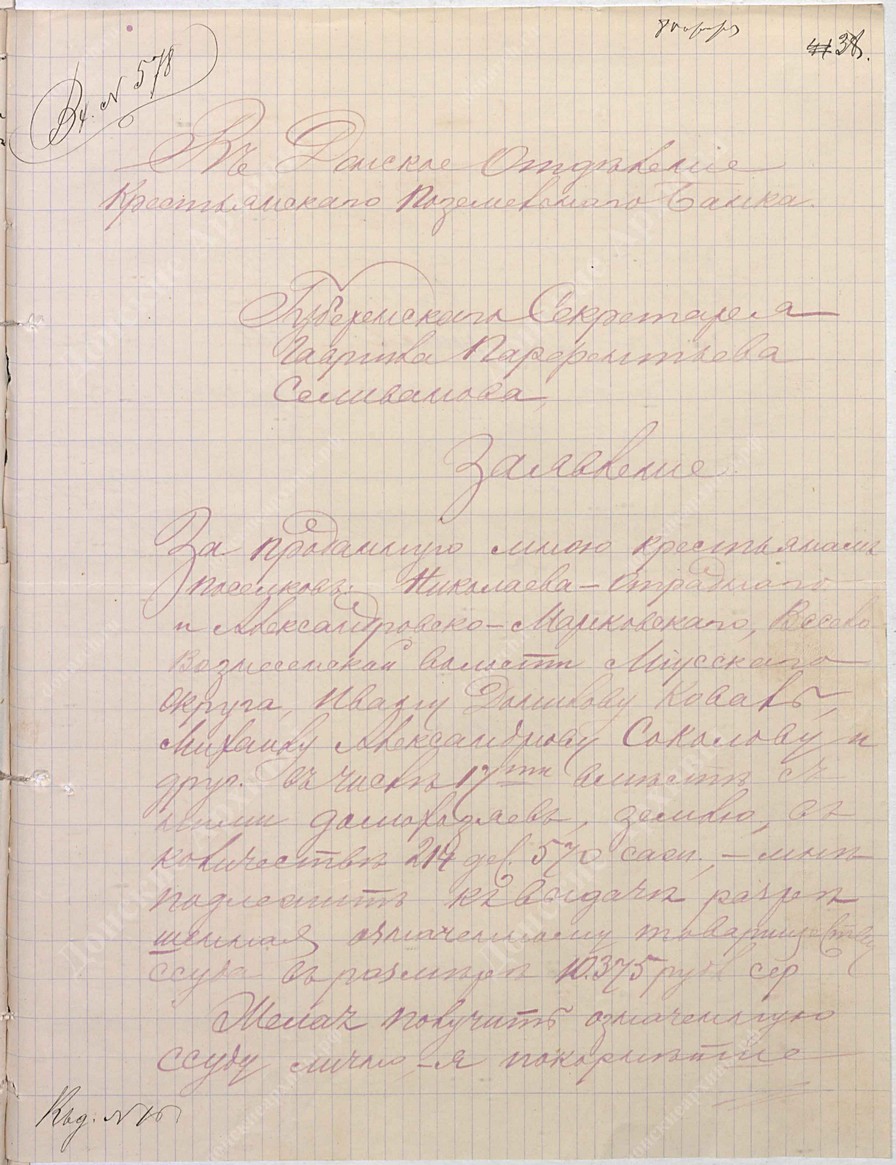 Вх. N 578
38.
Въ Донское Отдѣленіе
Крестьянскаго Поземельнаго Банка.
Губернскаго Секретаря
Гавріила Парфентьева
Селиванова,
Заявленіе
За проданную мною крестьянамъ
поселковъ: Николаева-Отраднаго
и Александровско-Марковскаго,
Вознесенской волости Міусскаго
округа, Ивану Коваль,
Михаилу Александрову Соколову и
друг. въ числѣ 17ти вмѣстѣ съ
ними домохозяевъ, землю, въ
количествѣ 214 дес. 570 саж., – мнѣ
подлежитъ къ выдачѣ разрѣ
шенная означенному товариществу
ссуда въ размѣрѣ 10.375 руб сер
Желая получить означенную
ссуду лично, – я покорнѣйше
Кад. N